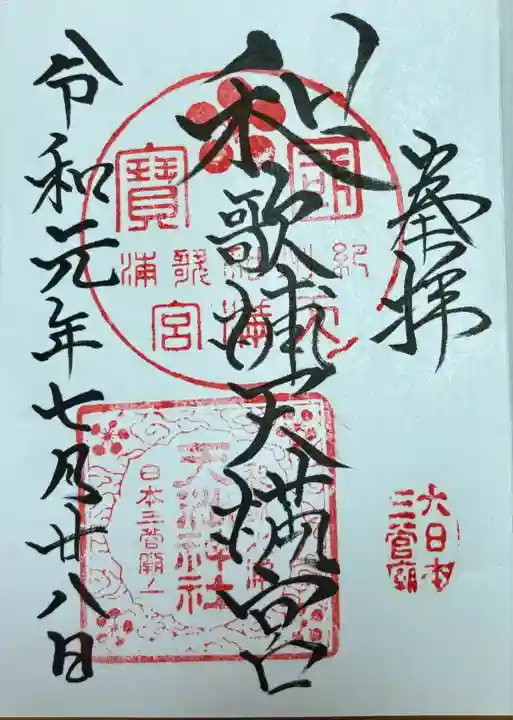 奉拝
和歌浦天満宮
令和元年七月廿八日
大日本
三菅廟
國寶
紀州和歌浦
天満宮
天満神社
日本三菅廟ノ一